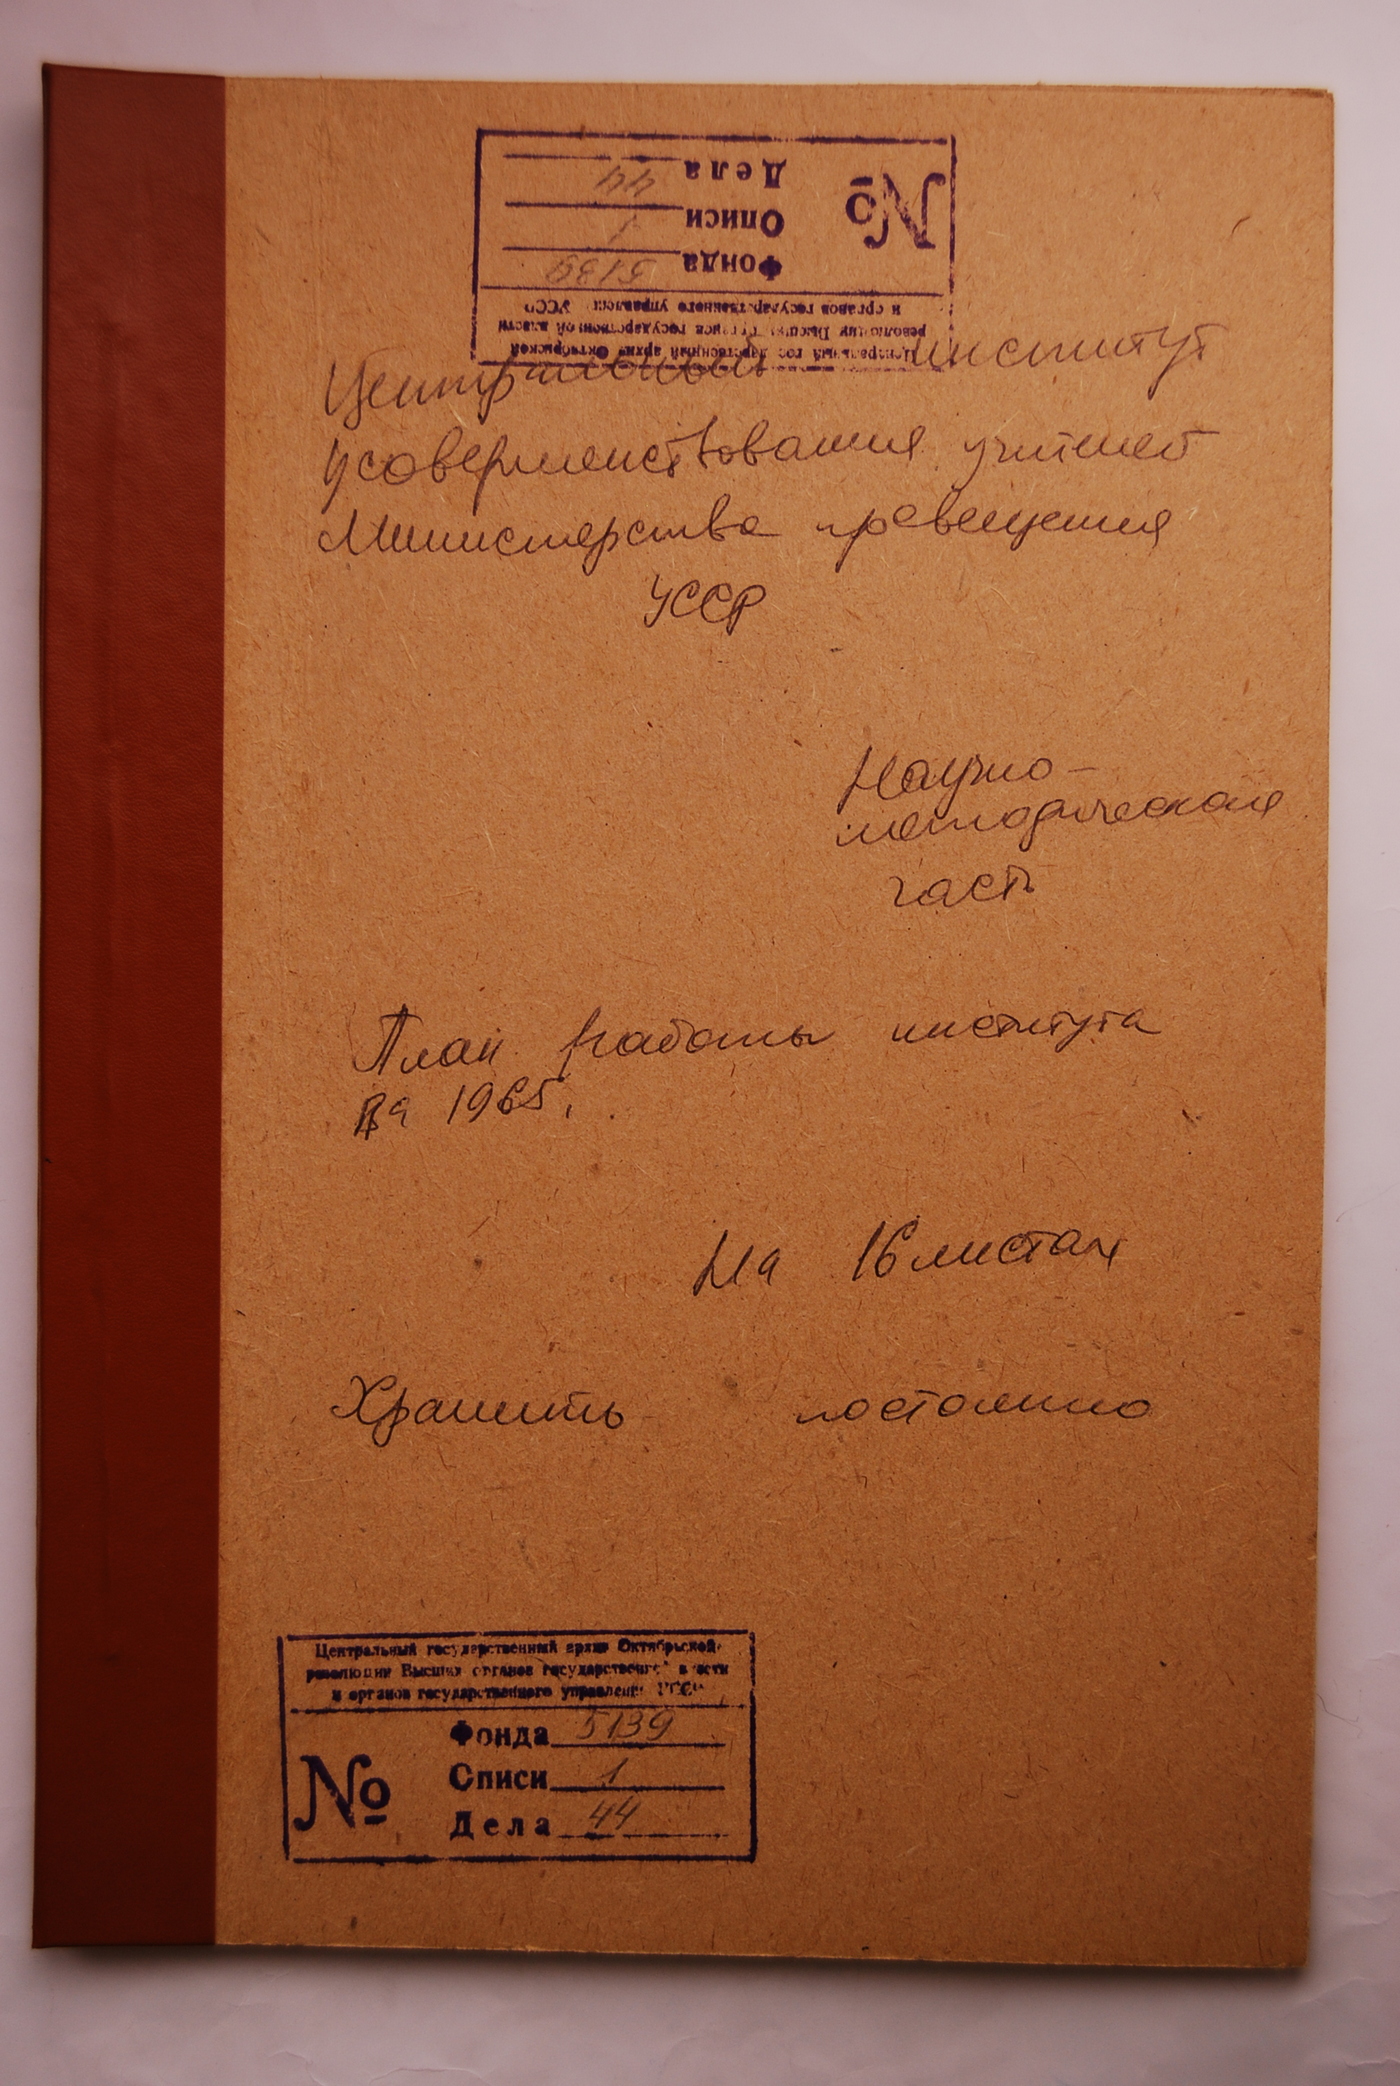 №
Дела 44
Описи 1
Фонда 5139
и органов государственного управления УССР
революции Высших органов государственной власти
Центральный государственный архив Октябрьской
Центральный институт
усовершенствования учителей
Министерства просвещения
УССР
Научно-
методическая
часть
План работы института
на 1965.
На 16 листах
Хранить постоянно
Центральный государственный архив Октябрьской
революции Высших органов государственной власти
и органов государственного управления УССР
Фонда 5139
№ Описи 1
Дела 44